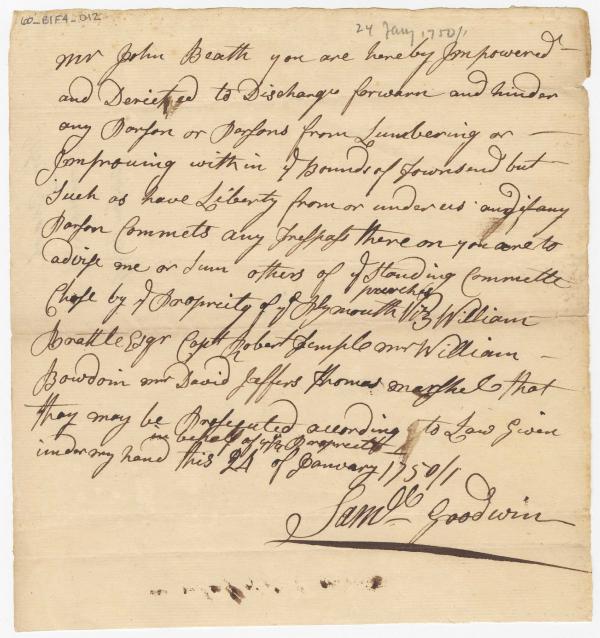 60_B1F4_012
24 Jany 1750/1
Mr John Beath you are hereby Impowered
and Derected to Discharge forwarn and hinder
any Parson or Parsons from Lumbering or —
Improving with in ye Bounds of Townsend but
Such as have Liberty from or under us and if any
Parson Commets any Trespass there on you are to
advise me or Sum others of ye Standing Commette
Chose by ye Propreity of ye Plymouth purches Viz William
Brattle Esqr Capt Robert Temple mr William —
Bowdoin mr David Jeffers Thomas Marshel that
thay may be Prosecuted according to Law Given
in behalf of ye Propreete
under my hand this 24 of January 1750/1
Samll Goodwin